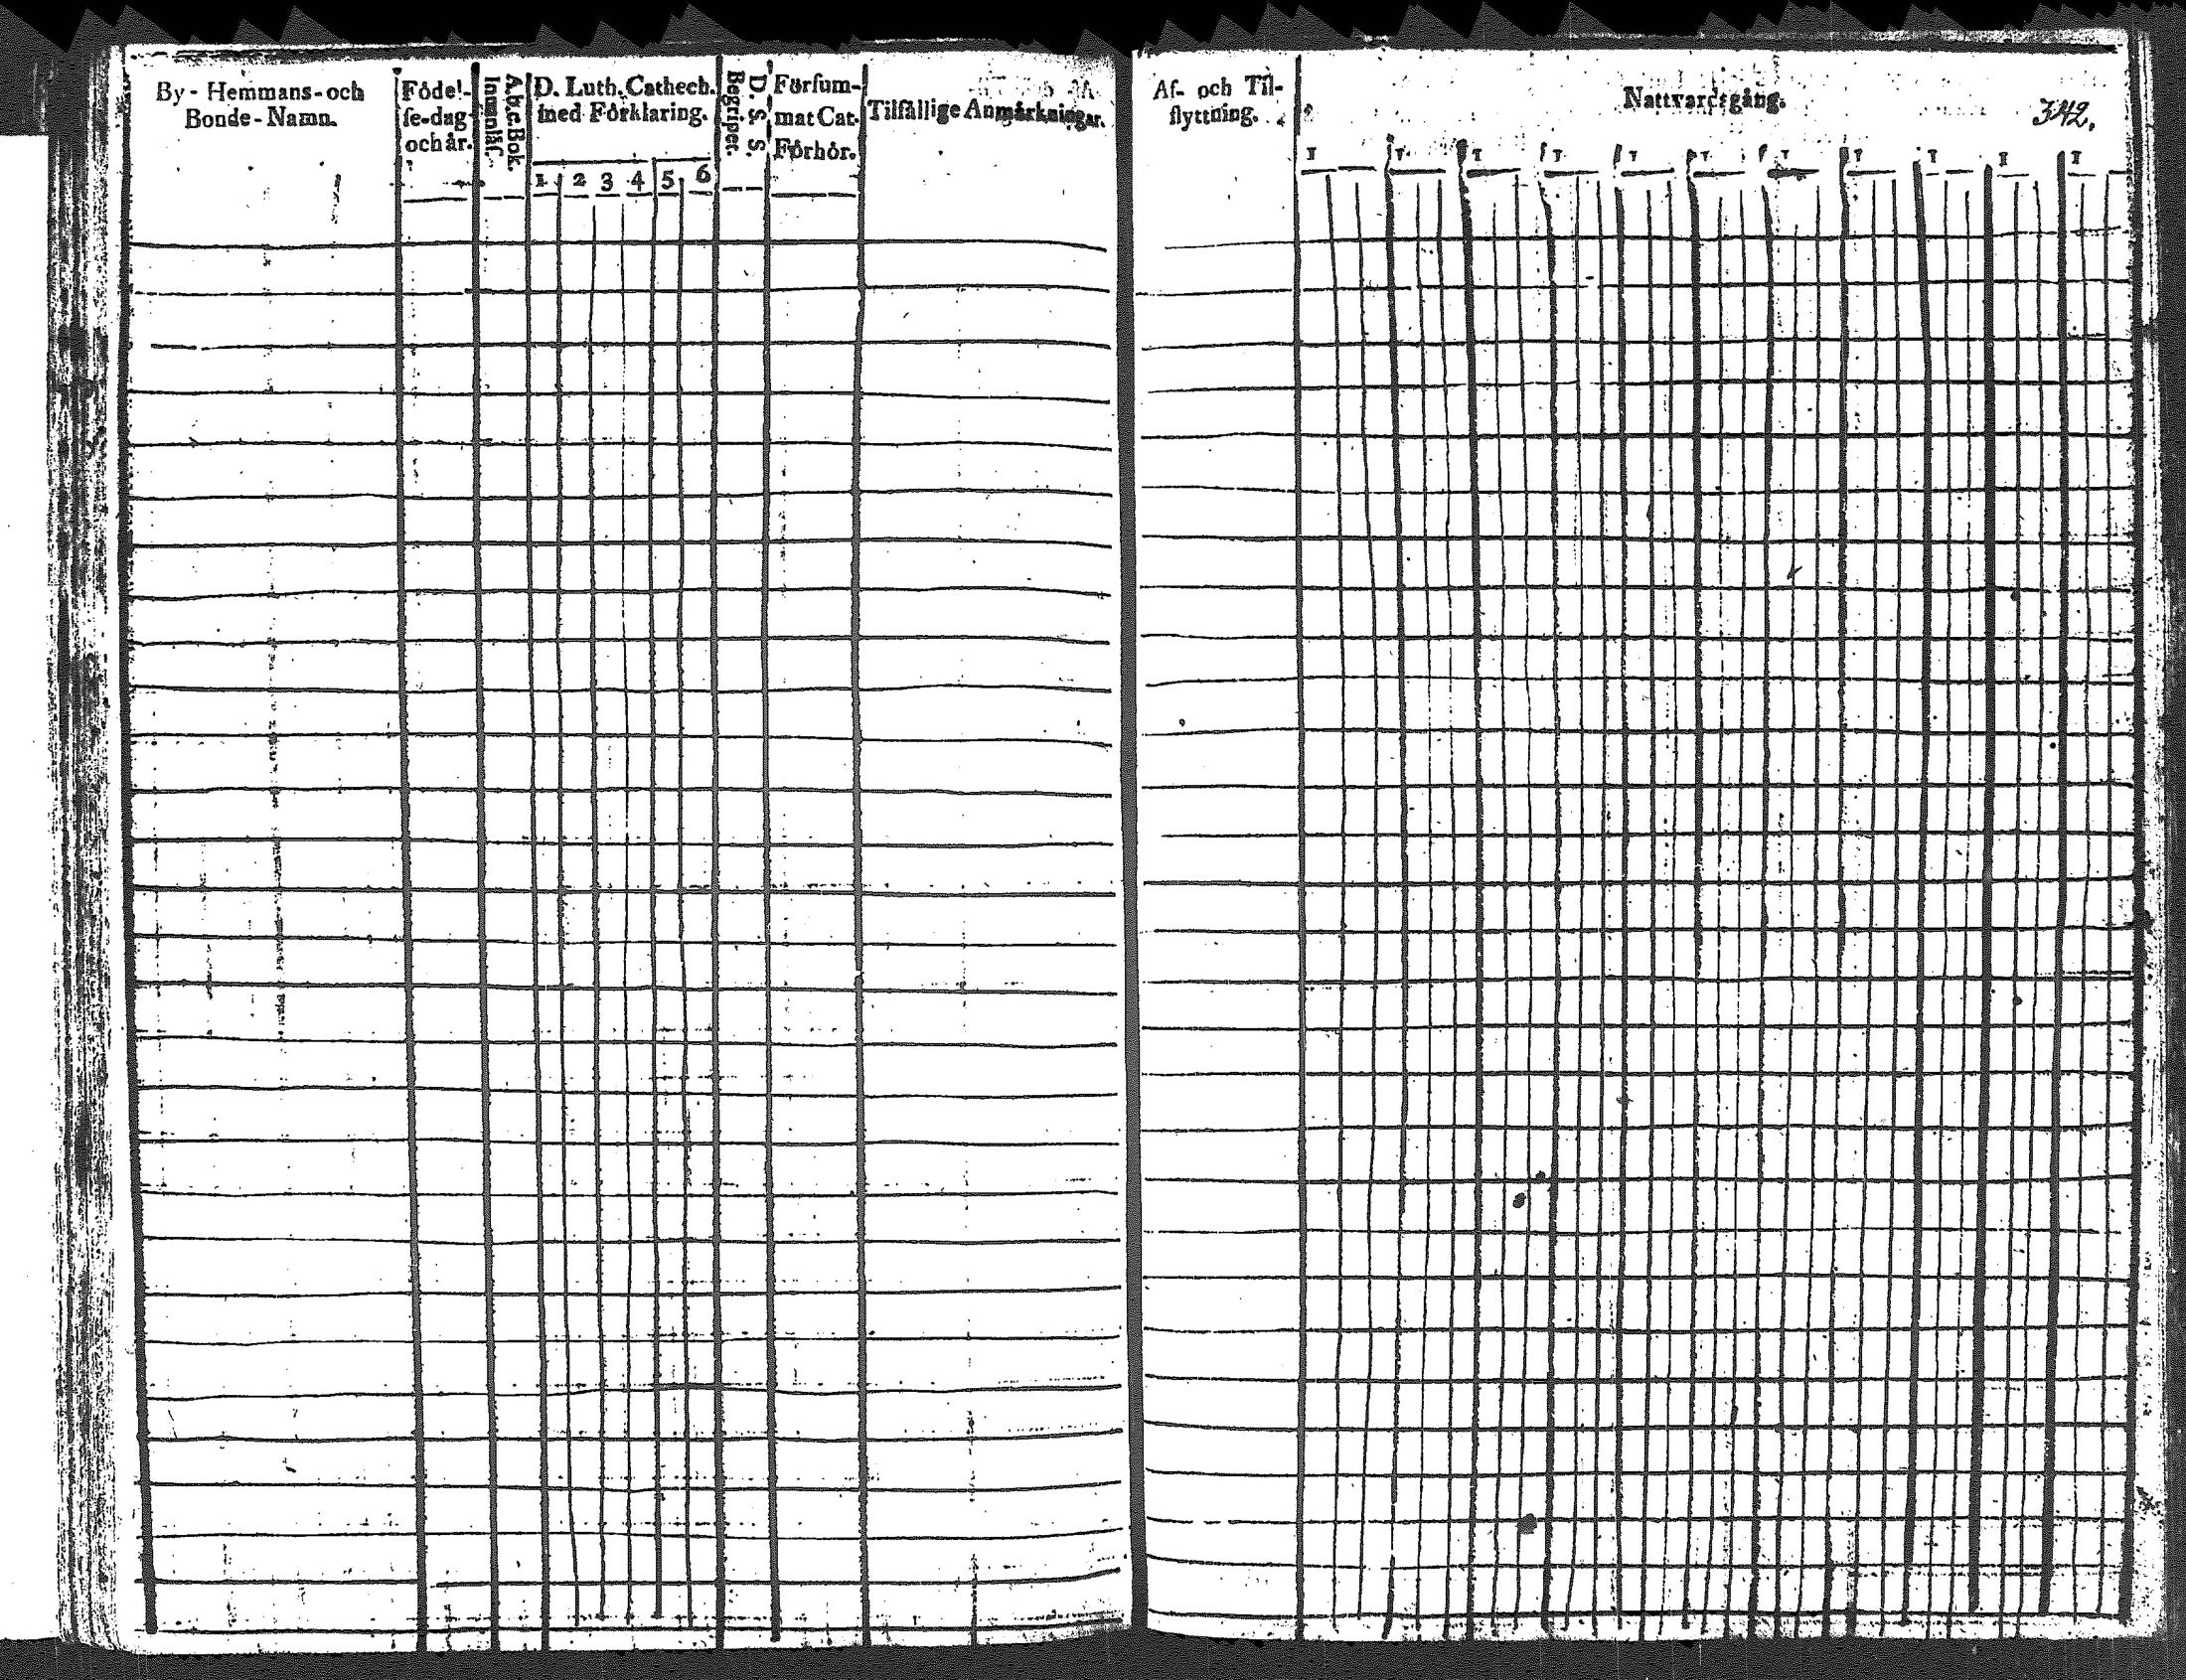 By - Hemmans - och
Bonde - Namn.
Födel-
se-dag
och år.
A.b.c. Bok.
Innanläs.
D. Luth. Cathech.
med Förklaring.
1 2 3 4 5 6
D. S. S.
Begriper.
Försum-
mat Cat.
Förhör.
Tilfällige Anmärkningar.
Af- och Til-
flyttning.
Nattvardsgång.
342.